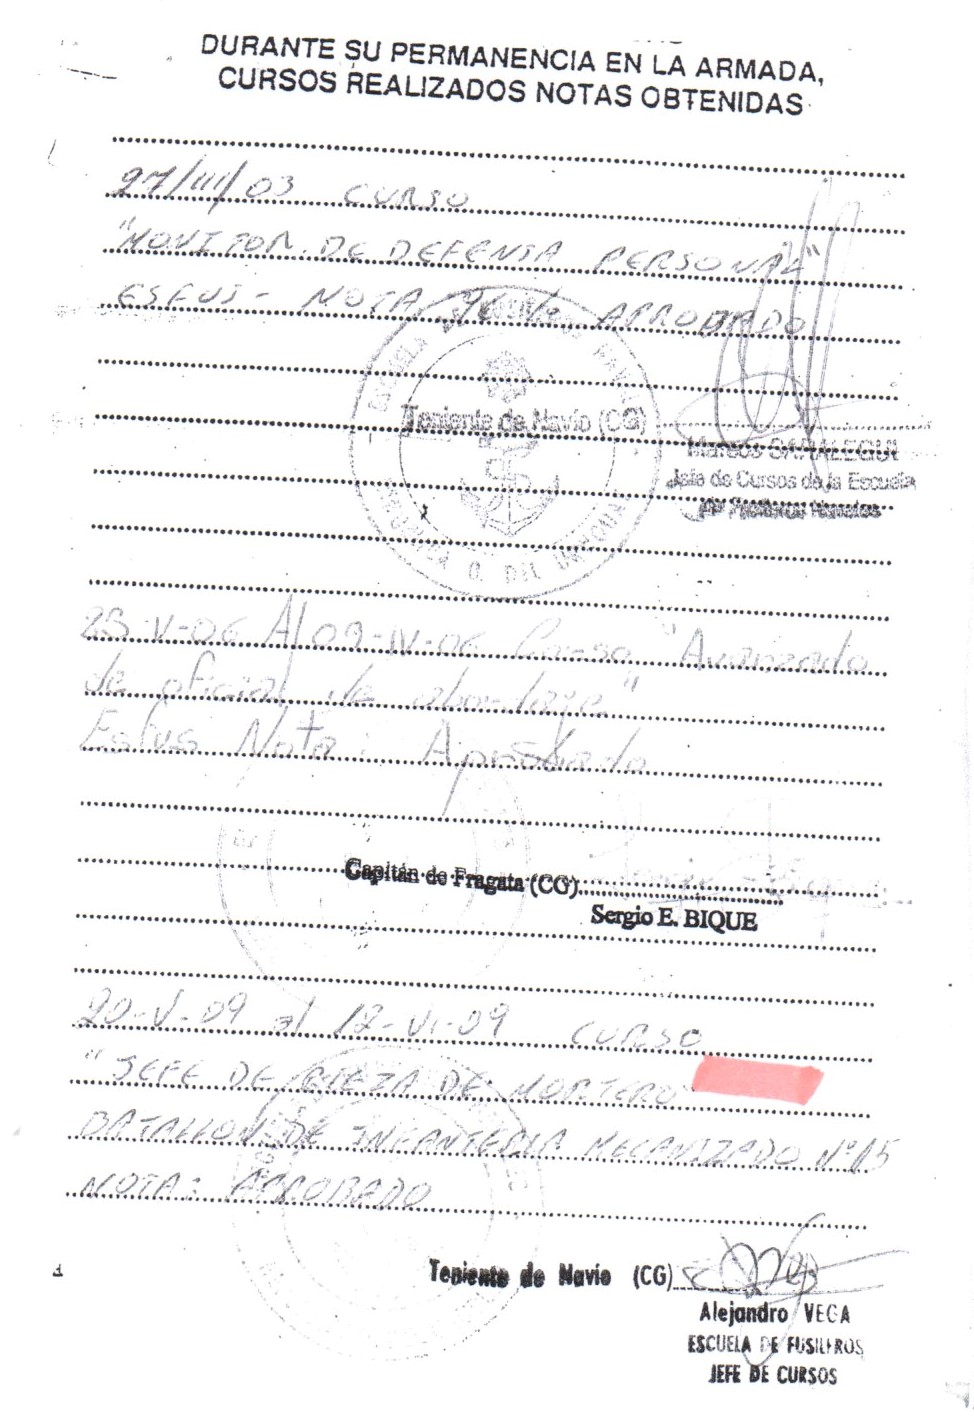 DURANTE SU PERMANENCIA EN LA ARMADA,
CURSOS REALIZADOS NOTAS OBTENIDAS
27/III/03 CURSO
"MONITOR DE DEFENSA PERSONAL"
ESFUS - NOTA APROBADO
ESCUELA
Teniente de Navío (CG)
Marcos SARALEGUI
Jefe de Cursos de la Escuela
de Fusileros Navales
REPUBLICA O. DEL URUGUAY
23-V-06 Al 09-IV-06 Curso "Avanzado
de oficial de abordaje"
Esfus Nota: Aprobado
Capitán de Fragata (CG)
Sergio E. BIQUE
20-V-09 al 12-VI-09 CURSO
"JEFE DE PIEZA DE MORTERO"
BATALLON DE INFANTERIA MECANIZADO Nº15
NOTA: APROBADO
Teniente de Navío (CG)
Alejandro VEGA
ESCUELA DE FUSILEROS
JEFE DE CURSOS